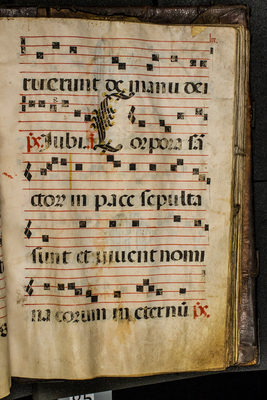 ruerunt de manu dei
ps Iubi. Corpora sã
ctorũ in pace sepulta
sunt et viuent nomi
na eorum in eternũ ps.